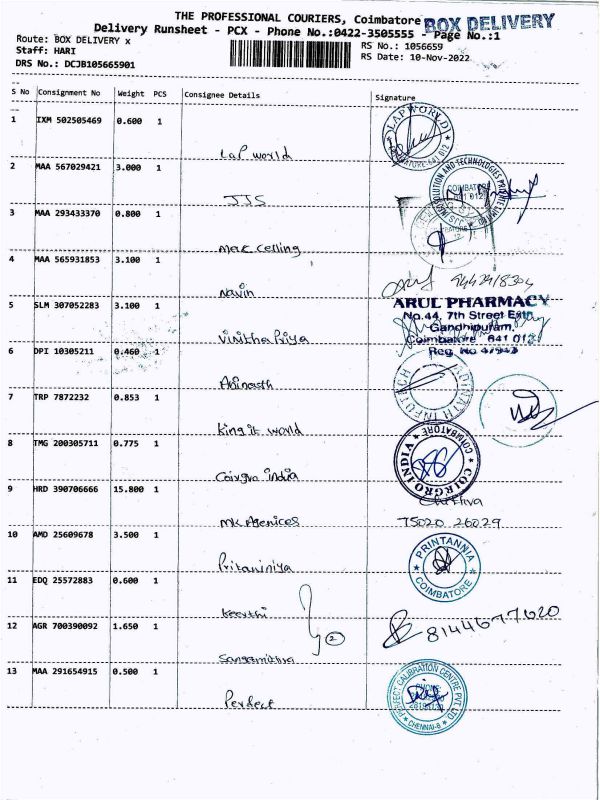 THE PROFESSIONAL COURIERS, Coimbatore
BOX DELIVERY
Delivery Runsheet - PCX - Phone No.:0422-3505555 - Page No.:1
Route: BOX DELIVERY x
RS No.: 1056659
Staff: HARI
RS Date: 10-Nov-2022
DRS No.: DCJB105665901
S No Consignment No Weight PCS Consignee Details Signature
1 IXM 502505469 0.600 1
Lap world
LAP WORLD
COIMBATORE-641 012
2 MAA 567029421 3.000 1
JJS
COIMBATORE
641 012
3 MAA 293433370 0.800 1
4 MAA 565931853 3.100 1
Navin
9442918304
5 SLM 307052283 3.100 1
Vinitha Priya
ARUL PHARMACY
No.44, 7th Street Extn,
Gandhipuram,
Coimbatore 641 012
Reg. No 47943
6 DPI 10305211 0.460 1
Abinasth
ADINATH INFOTECH
7 TRP 7872232 0.853 1
King it world
8 TMG 200305711 0.775 1
Coirgro india
COIRGRO INDIA
COIMBATORE
9 HRD 390706666 15.800 1
MK Agenices
75020 26029
10 AMD 25609678 3.500 1
Pritaniniya
PRINTANNIA
COIMBATORE
11 EDQ 25572883 0.600 1
Keerthi
12 AGR 700390092 1.650 1
2
8144677620
Sangamithra
13 MAA 291654915 0.500 1
Perfect
PERFECT CALIBRATION CENTRE PVT. LTD
CHENNAI-8